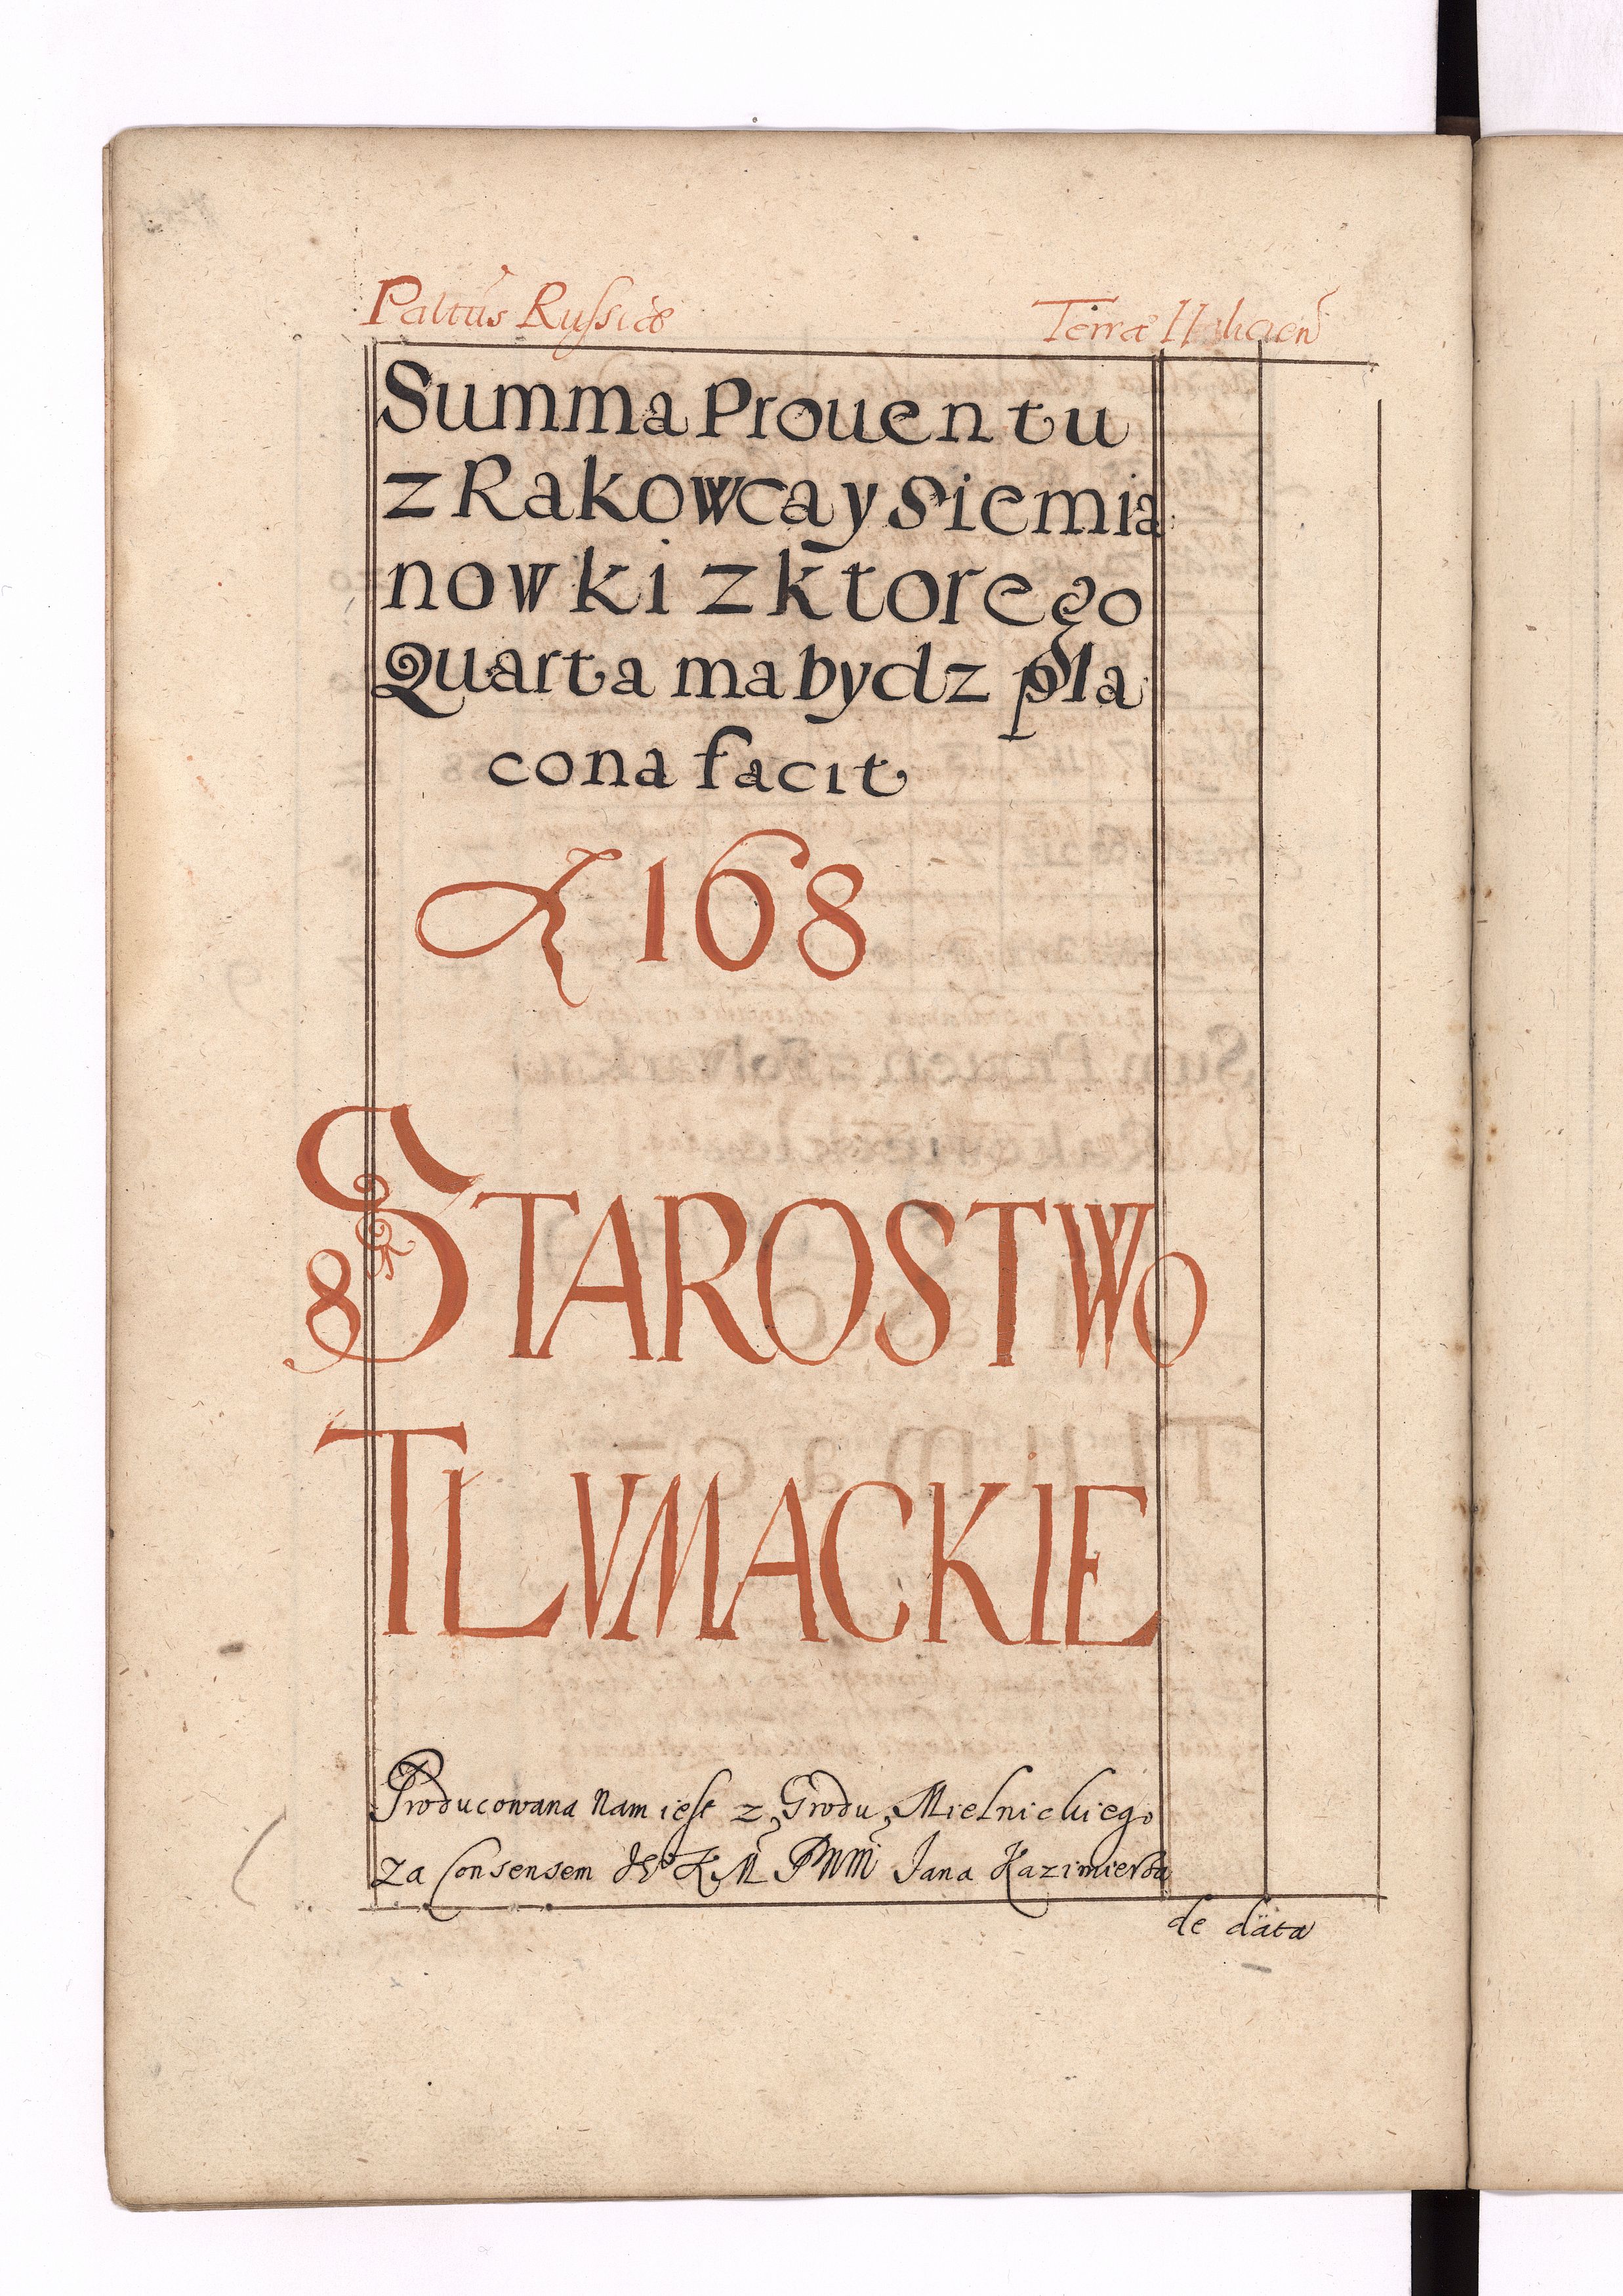 Paltus Russiæ
Terræ Halicien
Summa Prouentu
z Rakowca y Siemia
nowki z ktorego
Quarta ma bydz pła
cona facit
168
STAROSTWO
TŁVMACKIE
Producowana nam iest z Grodu Mielnickiego
za Consensem K M Jana Kazimierza
de data